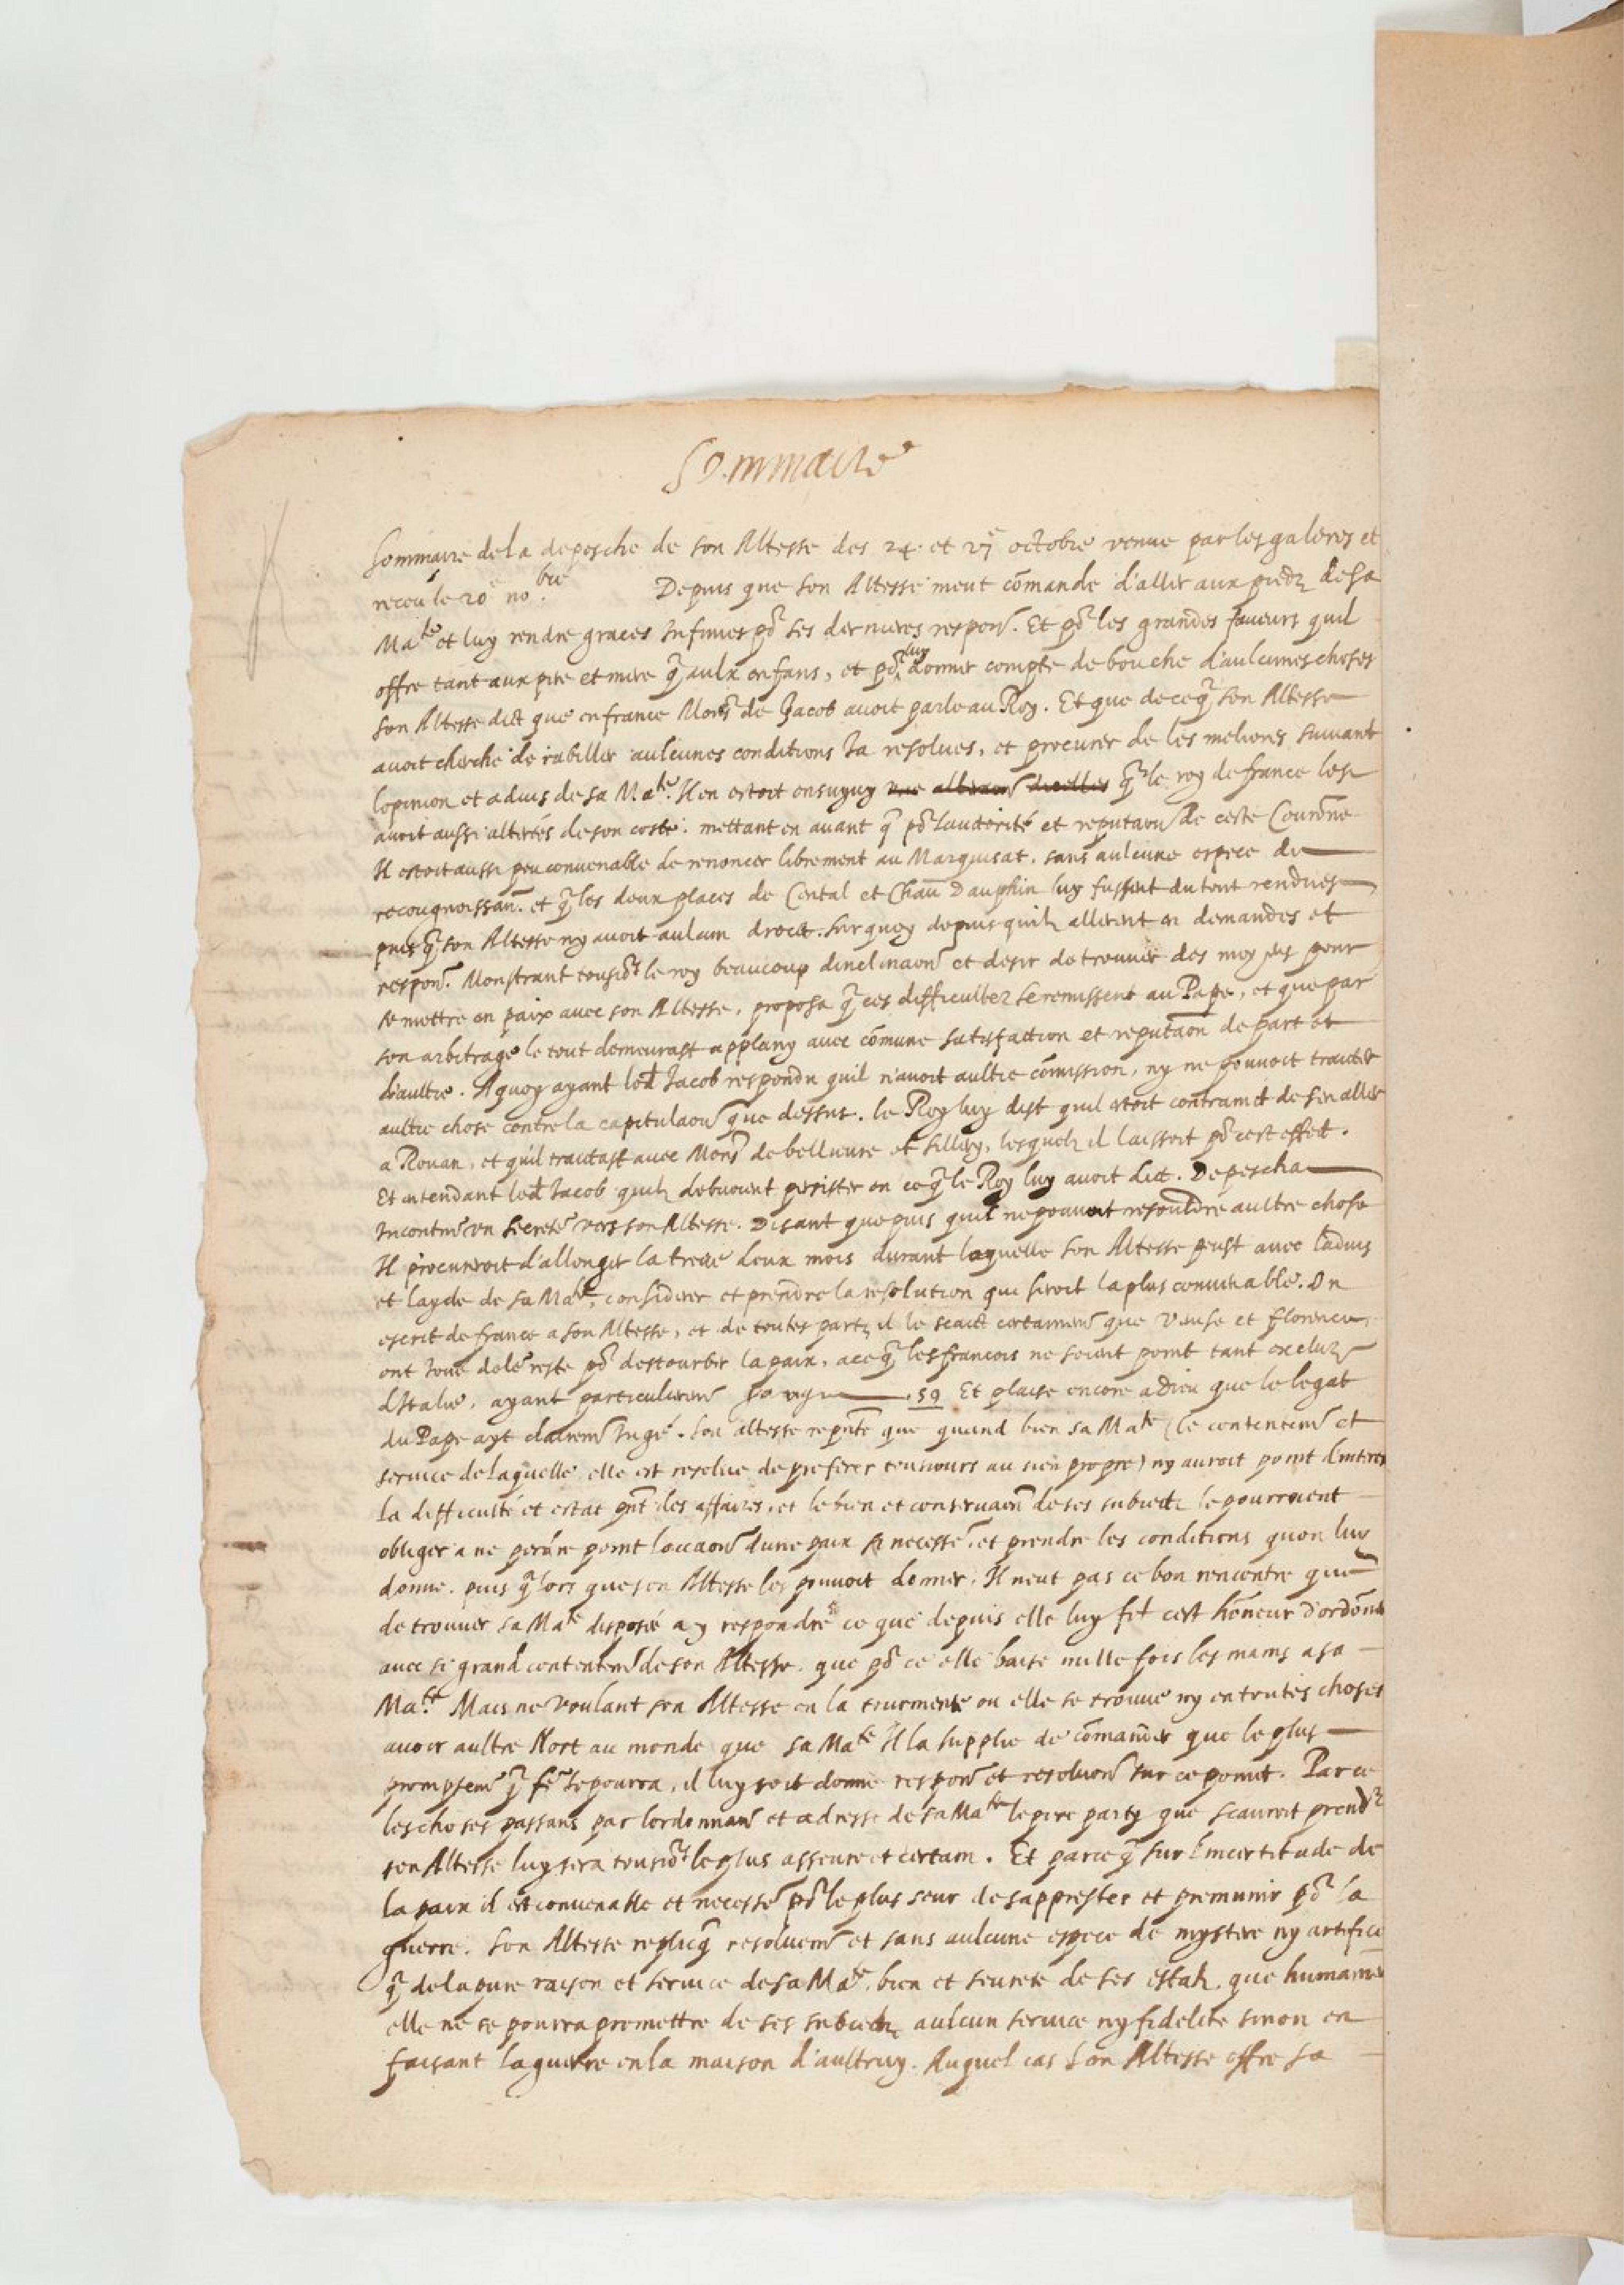 Sommaire
Sommaire de la depesche de son Altesse des 24. et 27 octobre venue par les galeres et
receu le 20e nobre. Depuis que son Altesse meut cõmande d'aller aux piedz de sa
Mate et luy rendre graces Infinies põ ses dernieres respon. Et põ les grandes faueurs quil
offre tant aux pere et mere q̃ aulx enfans, et põ luy donner compte de bouche d'aulcunes choses
son Altesse dict que en france Monsr de Jacob auoit parle au Roy. Et que de ce q̃ son Altesse
auoit cherche de rabiller aulcunes conditions Ja resolues, et procurer de les meliorer suiuant
lopinion et aduis de sa Mate. Il en estoit ensuyuy q̃ le roy de france les
auoit aussi alterés de son coste. mettant en auant q̃ põ lauctorité et reputaon de ceste Courõne
Il estoit aussi peu conuenable de renoncer librement au Marquisat. sans aulcune espece de
recougnoissan. et q̃ les deux places de Cental et Chau Dauphin luy fussent du tout rendues
puis q̃ son Altesse ny auoit aulcun droict. Sur quoy depuis quilz allerent en demandes et
respon. Monstrant tousiõ le roy beaucoup dinclinaon et desir de trouuer des moyens pour
se mettre en paix auec son Altesse, proposa q̃ ces difficultez se remissent au Pape, et que par
son arbitrage le tout demeurast applany auec cõmune satisfaction et reputaon de part et
d'aultre. A quoy ayant led Jacob respondu quil n'auoit aultre cõmission, ny ne pouuoit traicter
aultre chose contre la capitulaon que dessus. le Roy luy dist quil estoit contrainct de sen aller
a Rouan, et quil traictast auec Monsr de bellieure et sillery, lesquelz il laissoit põ cest effect.
Et entendant led Jacob quilz debuoient persister en ce q̃ le Roy luy auoit dict. Depescha
Incontine un secrete vers son Altesse. Disant que puis quil ne pouuoit resouldre aultre chose
Il procureroit d'allonger la treue deux mois durant laquelle son Altesse peust auec l'aduis
et layde de sa Mate, considerer et prendre la resolution qui seroit la plus conuenable. On
escrit de france a son Altesse, et de toutes partz il le scait certainem que Venise et florence,
ont Joué de le reste põ destourber la paix, a ce q̃ les francois ne soient point tant excluz
dItalie, ayant particulierem 59 Et plaise encore a dieu que le legat
du Pape ayt clairem Jugé. Son altesse repnte que quand bien sa Mate (le contentem et
seruice de laquelle elle est resolue de preferer tousiours au sien propre) ny auroit point dinterest
la difficulté et estat pnt des affaires, et le bien et conseruaon de ses subiectz le pourroient
obliger a ne perdre point loccaon dune paix si necesse, et prendre les conditions quon luy
donne. puis q̃ lors que son Altesse les pouuoit donner, Il neut pas ce bon rencontre que
de trouuer sa Mate disposée a y respondre ce que depuis elle luy fit cest hõneur d'ordõner
auec si grand contentem de son Altesse. que põ ce elle baise mille fois les mains a sa
Mate. Mais ne voulant son Altesse en la tourmente ou elle se trouue ny en toutes choses
auoir aultre Nort au monde que sa Mate Il la supplie de cõmander que le plus
promptem q̃ fe se pourra, il luy soit donne respon et resoluon sur ce point. Par ce
les choses passans par lordonnan et adresse de sa Mate le pire party que scauroit prendre
son Altesse luy sera tousiõ le plus asseure et certain. Et parce q̃ sur l'incertitude de
la paix il est conuenable et necesse põ le plus seur de sapprester et premunir põ la
guerre. Son Altesse replicq̃ resoluem et sans aulcune espece de mystere ny artifice
q̃ de la pure raison et seruice de sa Mate, bien et seurete de ses estatz. que humainem
elle ne se pourra promettre de ses subiectz aulcun seruice ny fidelite sinon en
faisant la guerre en la maison d'aultruy. Auquel cas Son Altesse offre sa